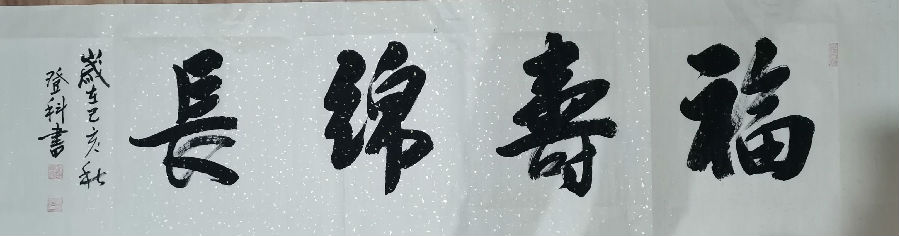 福壽綿長
歲在己亥秋
登科書